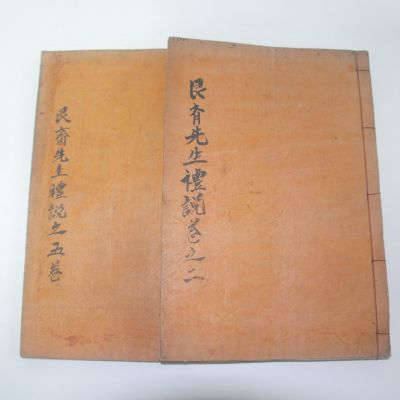 艮斋先生禮説卷之二
艮齋先生禮説之五卷